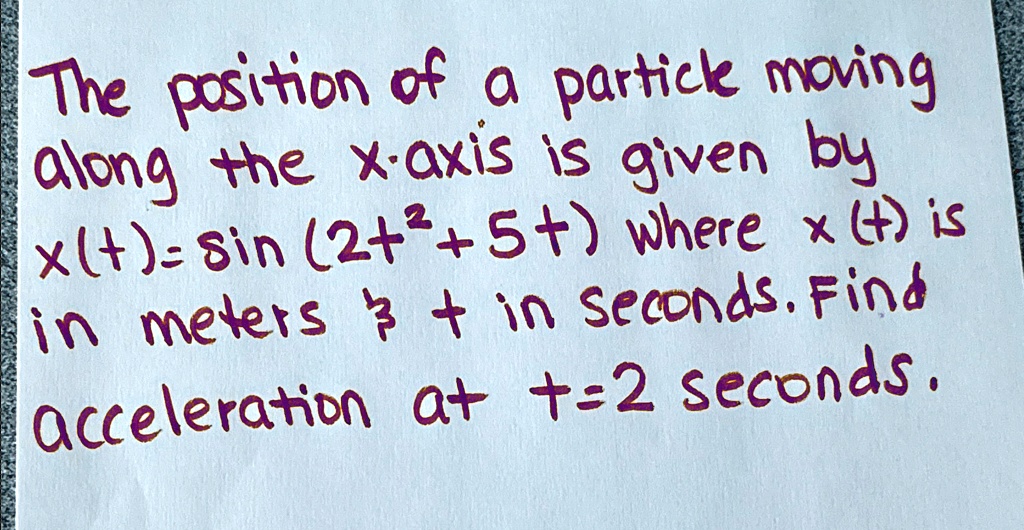 The position of a particle moving
along the x-axis is given by
x(t)= sin (2t² + 5t) where x (t) is
in meters & t in seconds. Find
acceleration at t=2 seconds.